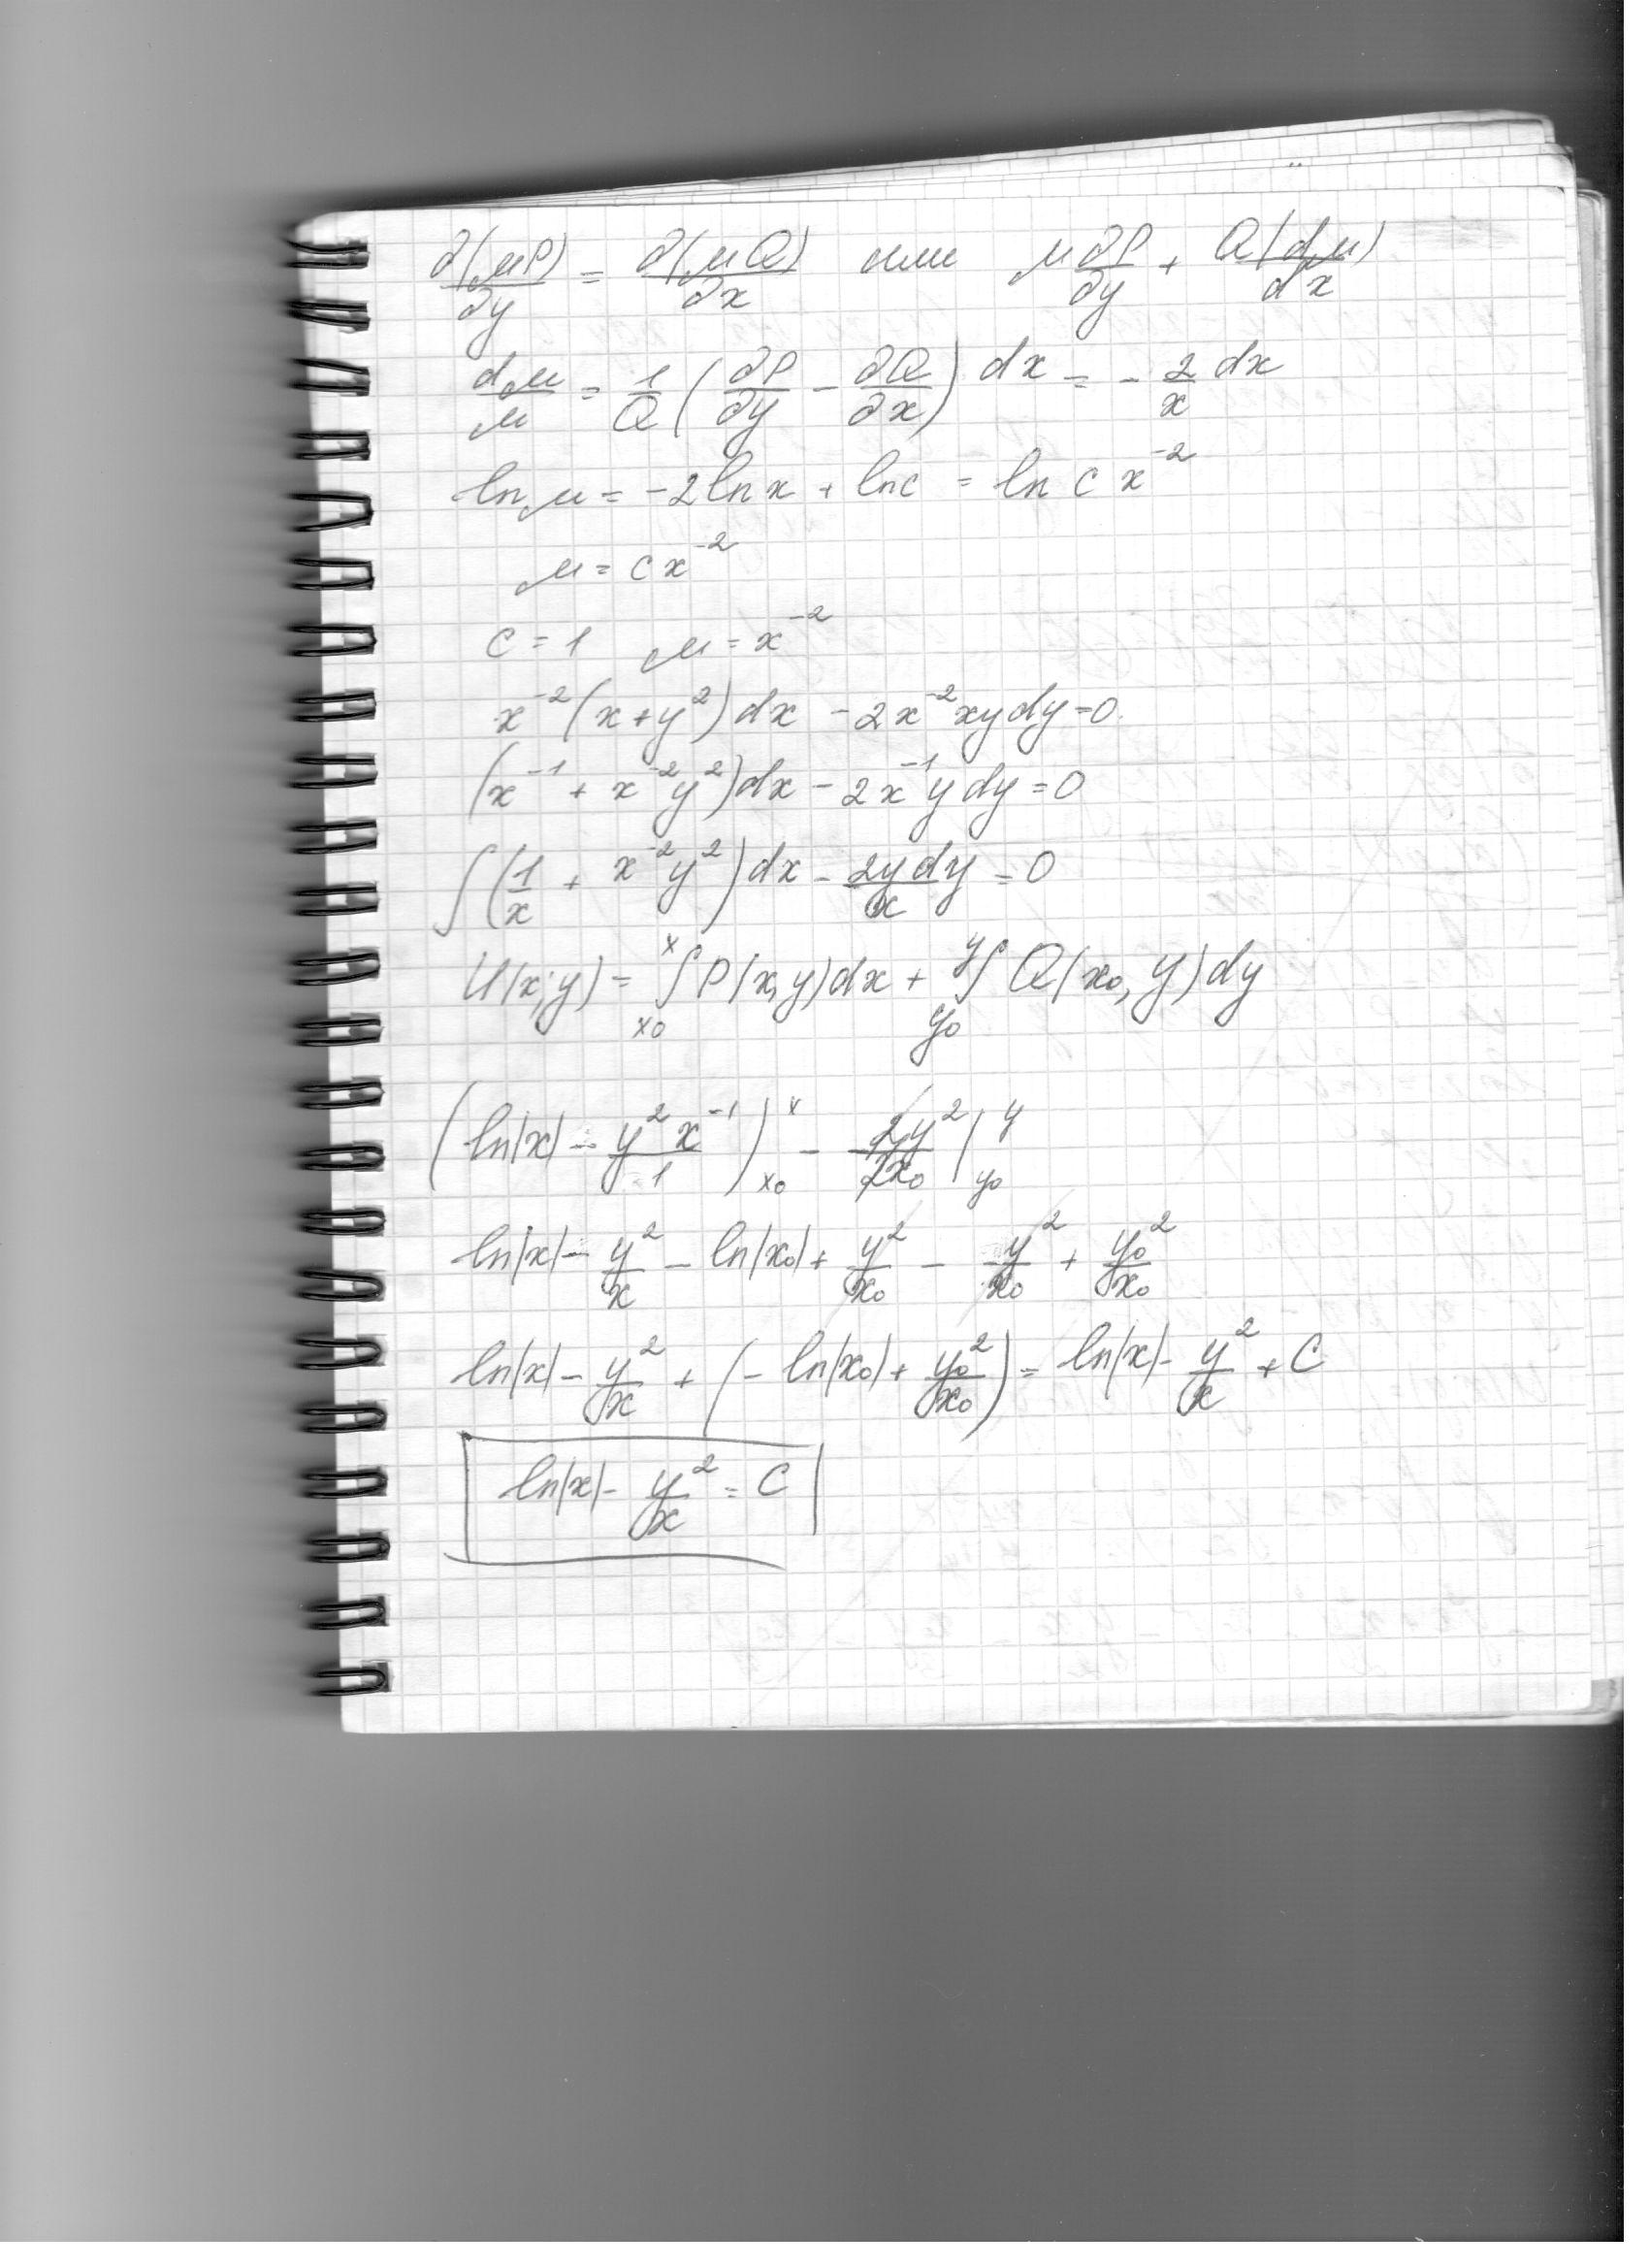 ∂(μP)/∂y = ∂(μQ)/∂x или μ∂P/∂y + Q(dμ)/dx
dμ/μ = 1/Q (∂P/∂y - ∂Q/∂x) dx = - 2/x dx
ln μ = -2 ln x + ln c = ln c x^-2
μ = c x^-2
c = 1 μ = x^-2
x^-2 (x + y^2) dx - 2x^-2 xy dy = 0
(x^-1 + x^-2 y^2) dx - 2x^-1 y dy = 0
∫(1/x + x^-2 y^2) dx - 2y dy/x = 0
U(x; y) = x∫x₀ P(x, y) dx + y∫y₀ Q(x₀, y) dy
(ln|x| - y^2 x^-1/1)|x x₀ - 2y^2/2x₀ |y y₀
ln|x| - y^2/x - ln|x₀| + y^2/x₀ - y^2/x₀ + y₀^2/x₀
ln|x| - y^2/x + (- ln|x₀| + y₀^2/x₀) = ln|x| - y^2/x + C
ln|x| - y^2/x = C